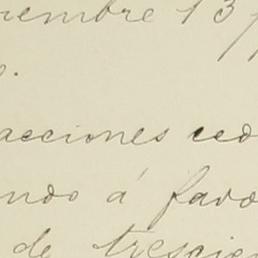 iembre 13
acciones ced
ndo á favo
de trescien